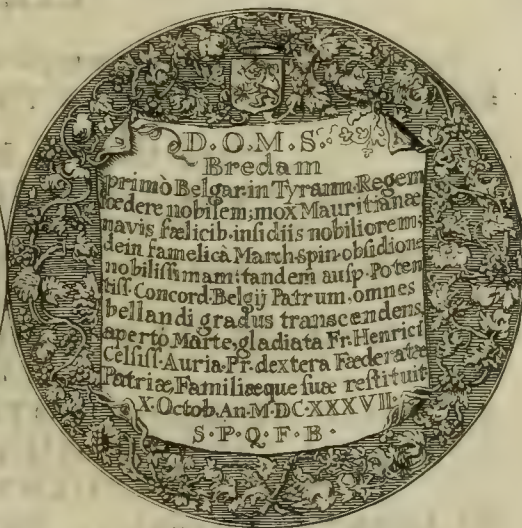 D·O·M·S·
Bredam
primò Belgar in Tyrann. Regem
fœdere nobilem; mox Mauritianæ
navis fælicib·insidiis nobiliorem;
dein famelicâ March·Spin·obsidione
nobilissimam: tandem ausp·Poten
tiss·Concord·Belgij Patrum, omnes
bellandi gradus transcendens,
aperto Marte, gladiata Fr·Henrici
Celsiss·Auria·Pr·dextera Fæderatæ
Patriæ, Familiæque suæ restituit
X·Octob·An·M·DC·XXXVII·
S·P·Q·F·B·